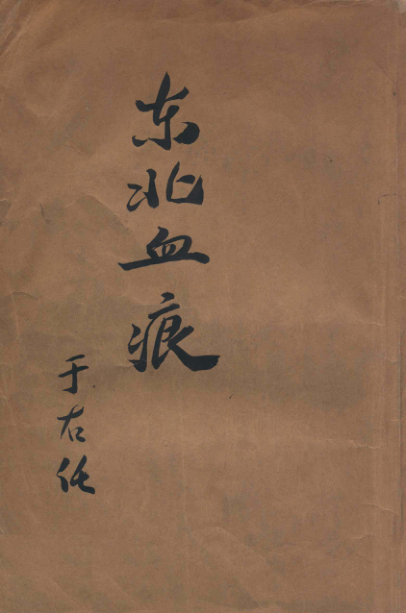 东北血痕
于右任